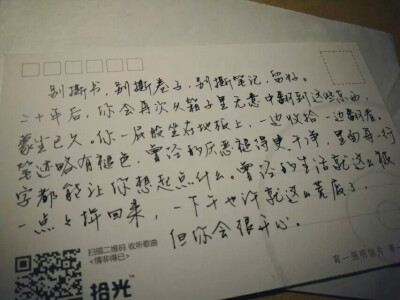 别撕书，别撕卷子，别撕笔记，留好。
二十年后，你会再次从箱子里无意中翻到这些东西，
蒙尘已久。你一屁股坐在地板上，一边收拾一边翻看。
笔迹略有褪色，曾经的厌恶褪得更干净，里面每一行
字都能让你想起点什么。曾经的生活就这么被
一点点捡回来，一下午也许就这么荒废了，
但你会很开心。
扫描二维码 收听歌曲
<情非得已>
拾光™
寄一张明信片